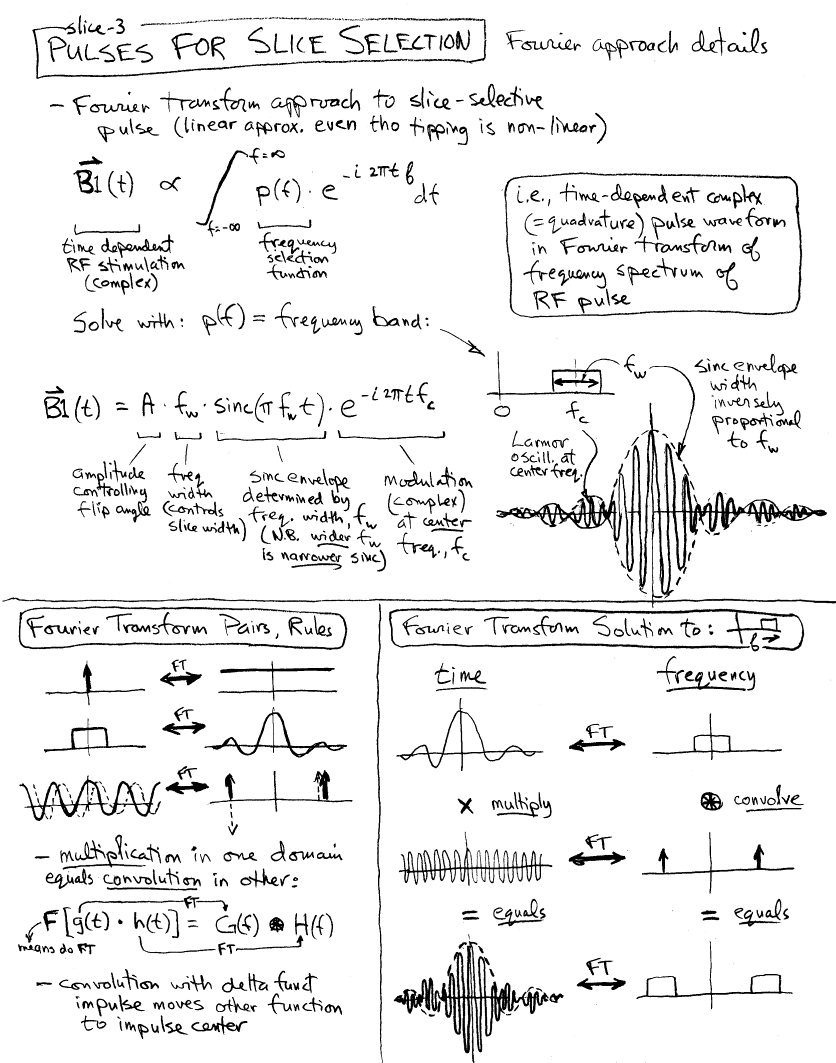 slice-3
PULSES FOR SLICE SELECTION
Fourier approach details
– Fourier Transform approach to slice-selective
pulse (linear approx. even tho tipping is non-linear)
B1(t) ∝ ∫ f=∞ f=-∞ p(f) · e^{-i 2πt f} dt
time dependent
RF stimulation
(complex)
frequency
selection
function
i.e., time-dependent complex
(=quadrature) pulse waveform
in Fourier transform of
frequency spectrum of
RF pulse
Solve with: p(f) = frequency band:
B1(t) = A · f_w · sinc(π f_w t) · e^{-i 2πt f_c}
amplitude
controlling
flip angle
freq
width
(controls
slice width)
sinc envelope
determined by
freq. width, f_w
(N.B. wider f_w
is narrower sinc)
modulation
(complex)
at center
freq., f_c
f_w
0
f_c
sinc envelope
width
inversely
proportional
to f_w
Larmor
oscill. at
center freq.
Fourier Transform Pairs, Rules
FT
FT
FT
– multiplication in one domain
equals convolution in other:
FT
F[g(t) · h(t)] = G(f) ⊛ H(f)
means do FT
FT
– convolution with delta funct
impulse moves other function
to impulse center
Fourier Transform Solution to:
f
time
frequency
FT
× multiply
⊛ convolve
FT
= equals
= equals
FT